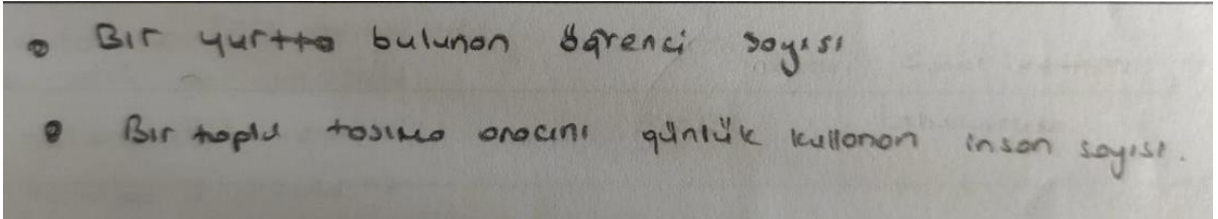 • Bir yurtta bulunan öğrenci sayısı
• Bir toplu tasıma aracını günlük kullanan insan sayısı.